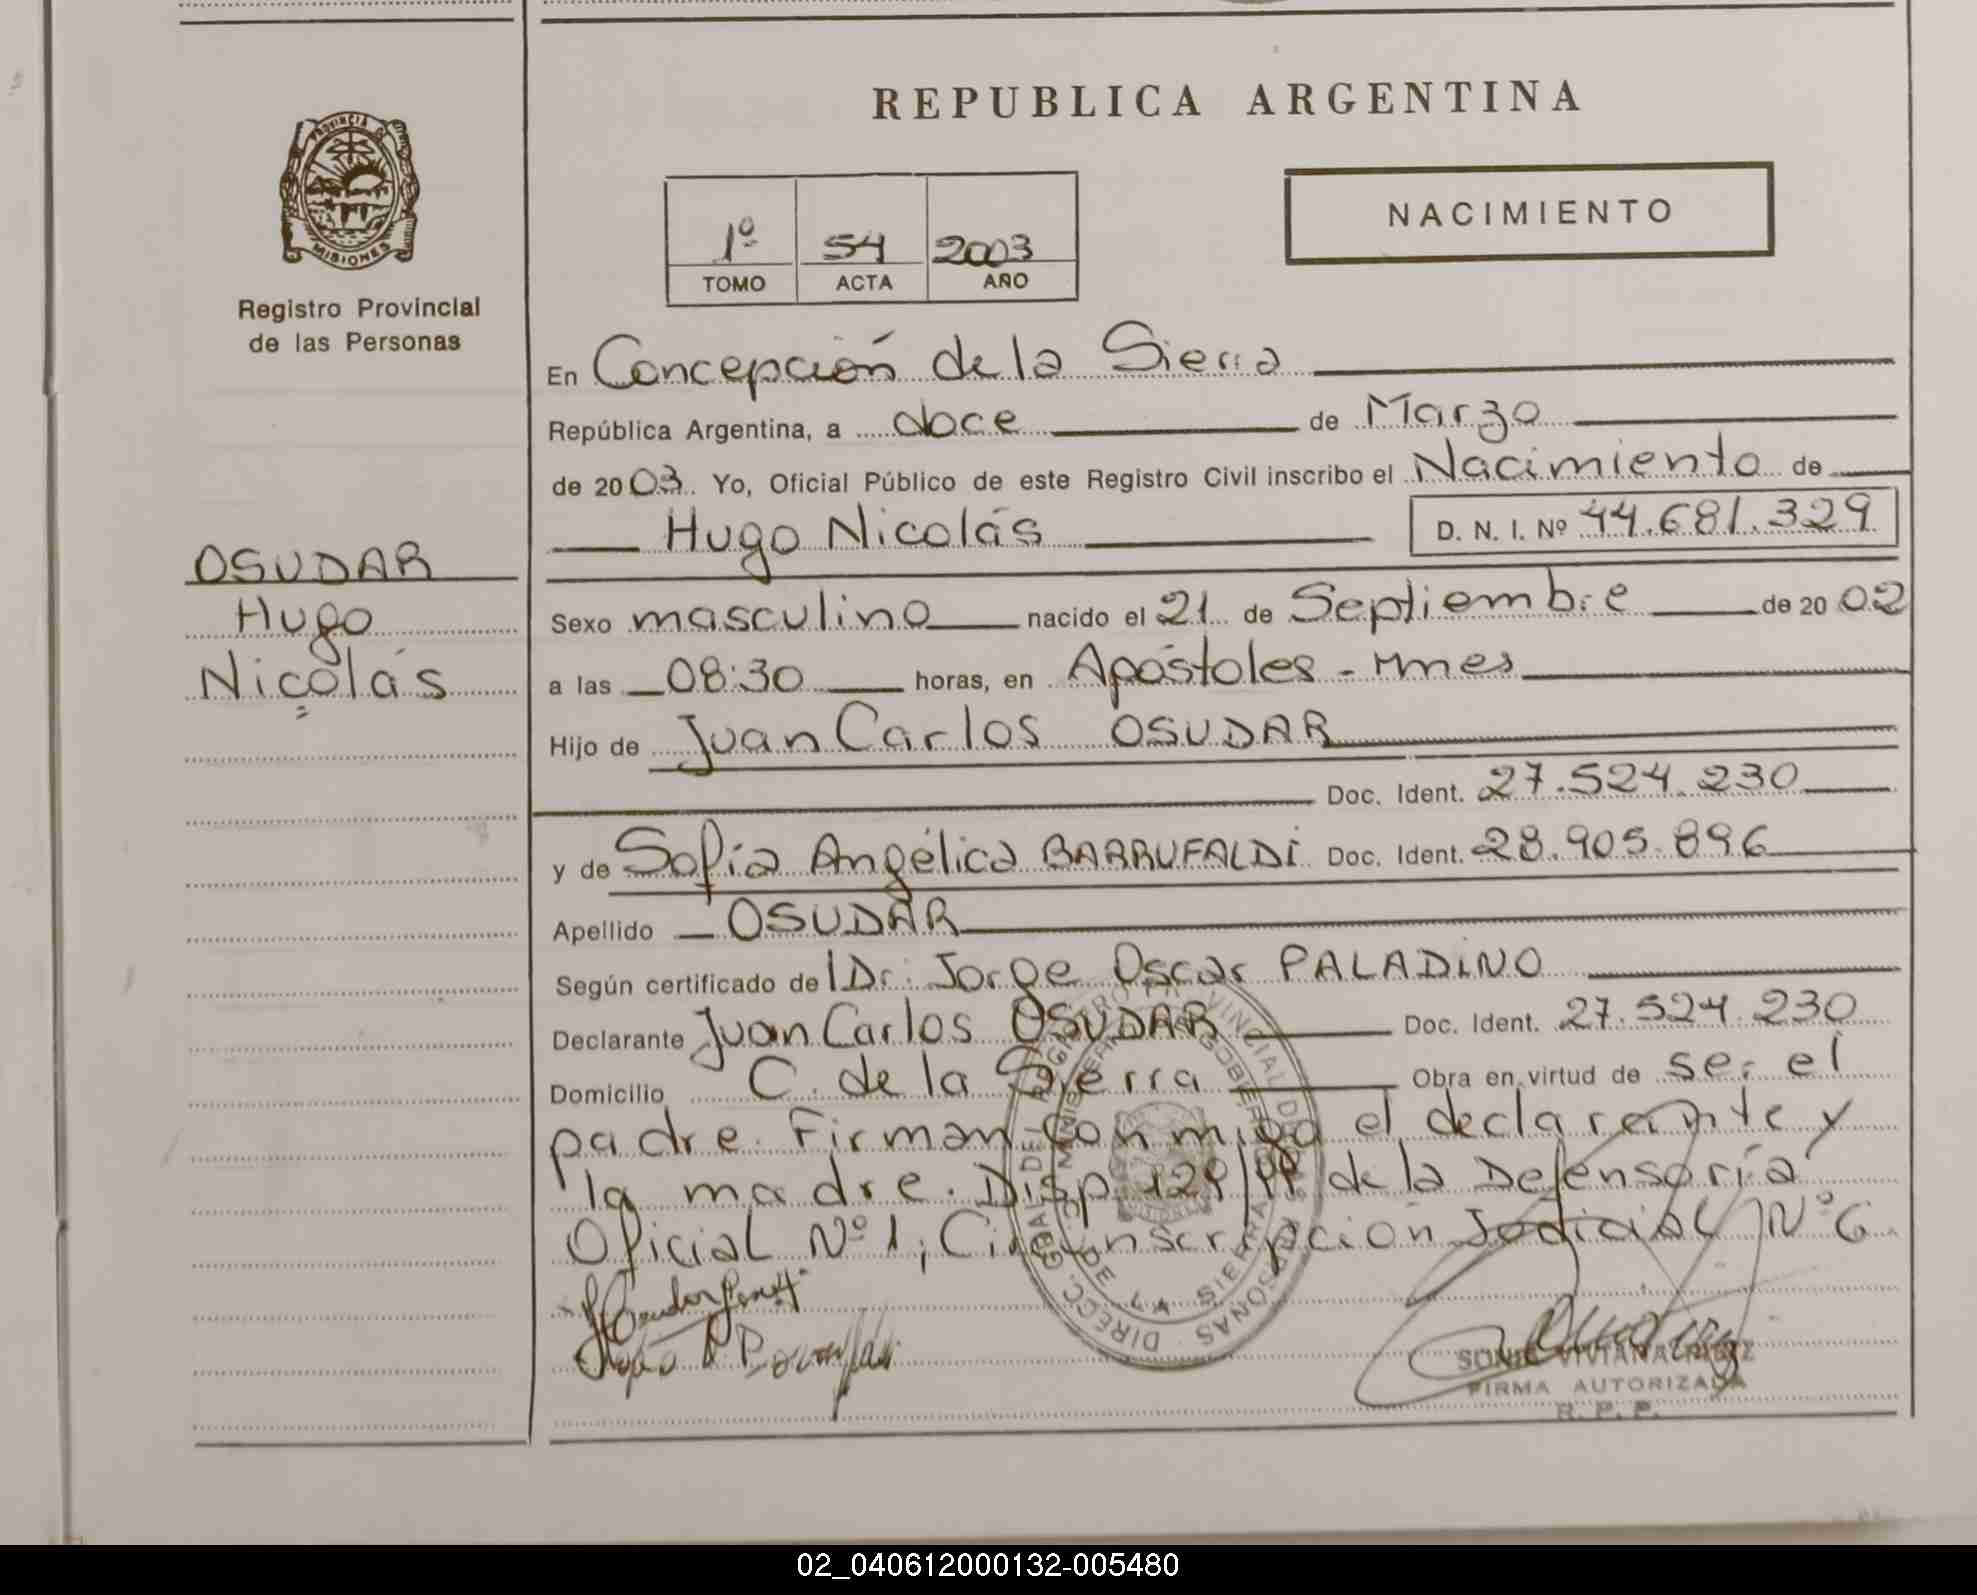 REPUBLICA ARGENTINA
PROVINCIA DE
MISIONES
Registro Provincial
de las Personas
1º 54 2003
TOMO ACTA AÑO
NACIMIENTO
En Concepción de la Sierra
República Argentina, a doce de Marzo
de 2003. Yo, Oficial Público de este Registro Civil inscribo el Nacimiento de
Hugo Nicolás D. N. I. Nº 44.681.329
OSUDAR
Hugo
Nicolás
Sexo masculino nacido el 21 de Septiembre de 2002
a las 08:30 horas, en Apóstoles - Mnes
Hijo de Juan Carlos OSUDAR
Doc. Ident. 27.524.230
y de Sofía Angélica BARRUFALDI Doc. Ident. 28.905.896
Apellido OSUDAR
Según certificado de Dr. Jorge Oscar PALADINO
Declarante Juan Carlos OSUDAR Doc. Ident. 27.524.230
Domicilio C. de la Sierra Obra en virtud de ser el
padre. Firman conmigo el declarante y
la madre. Disp. de la Defensoría
Oficial Nº 1, Circunscripción Judicial Nº 6
FIRMA AUTORIZADA
R. P. P.
02_040612000132-005480